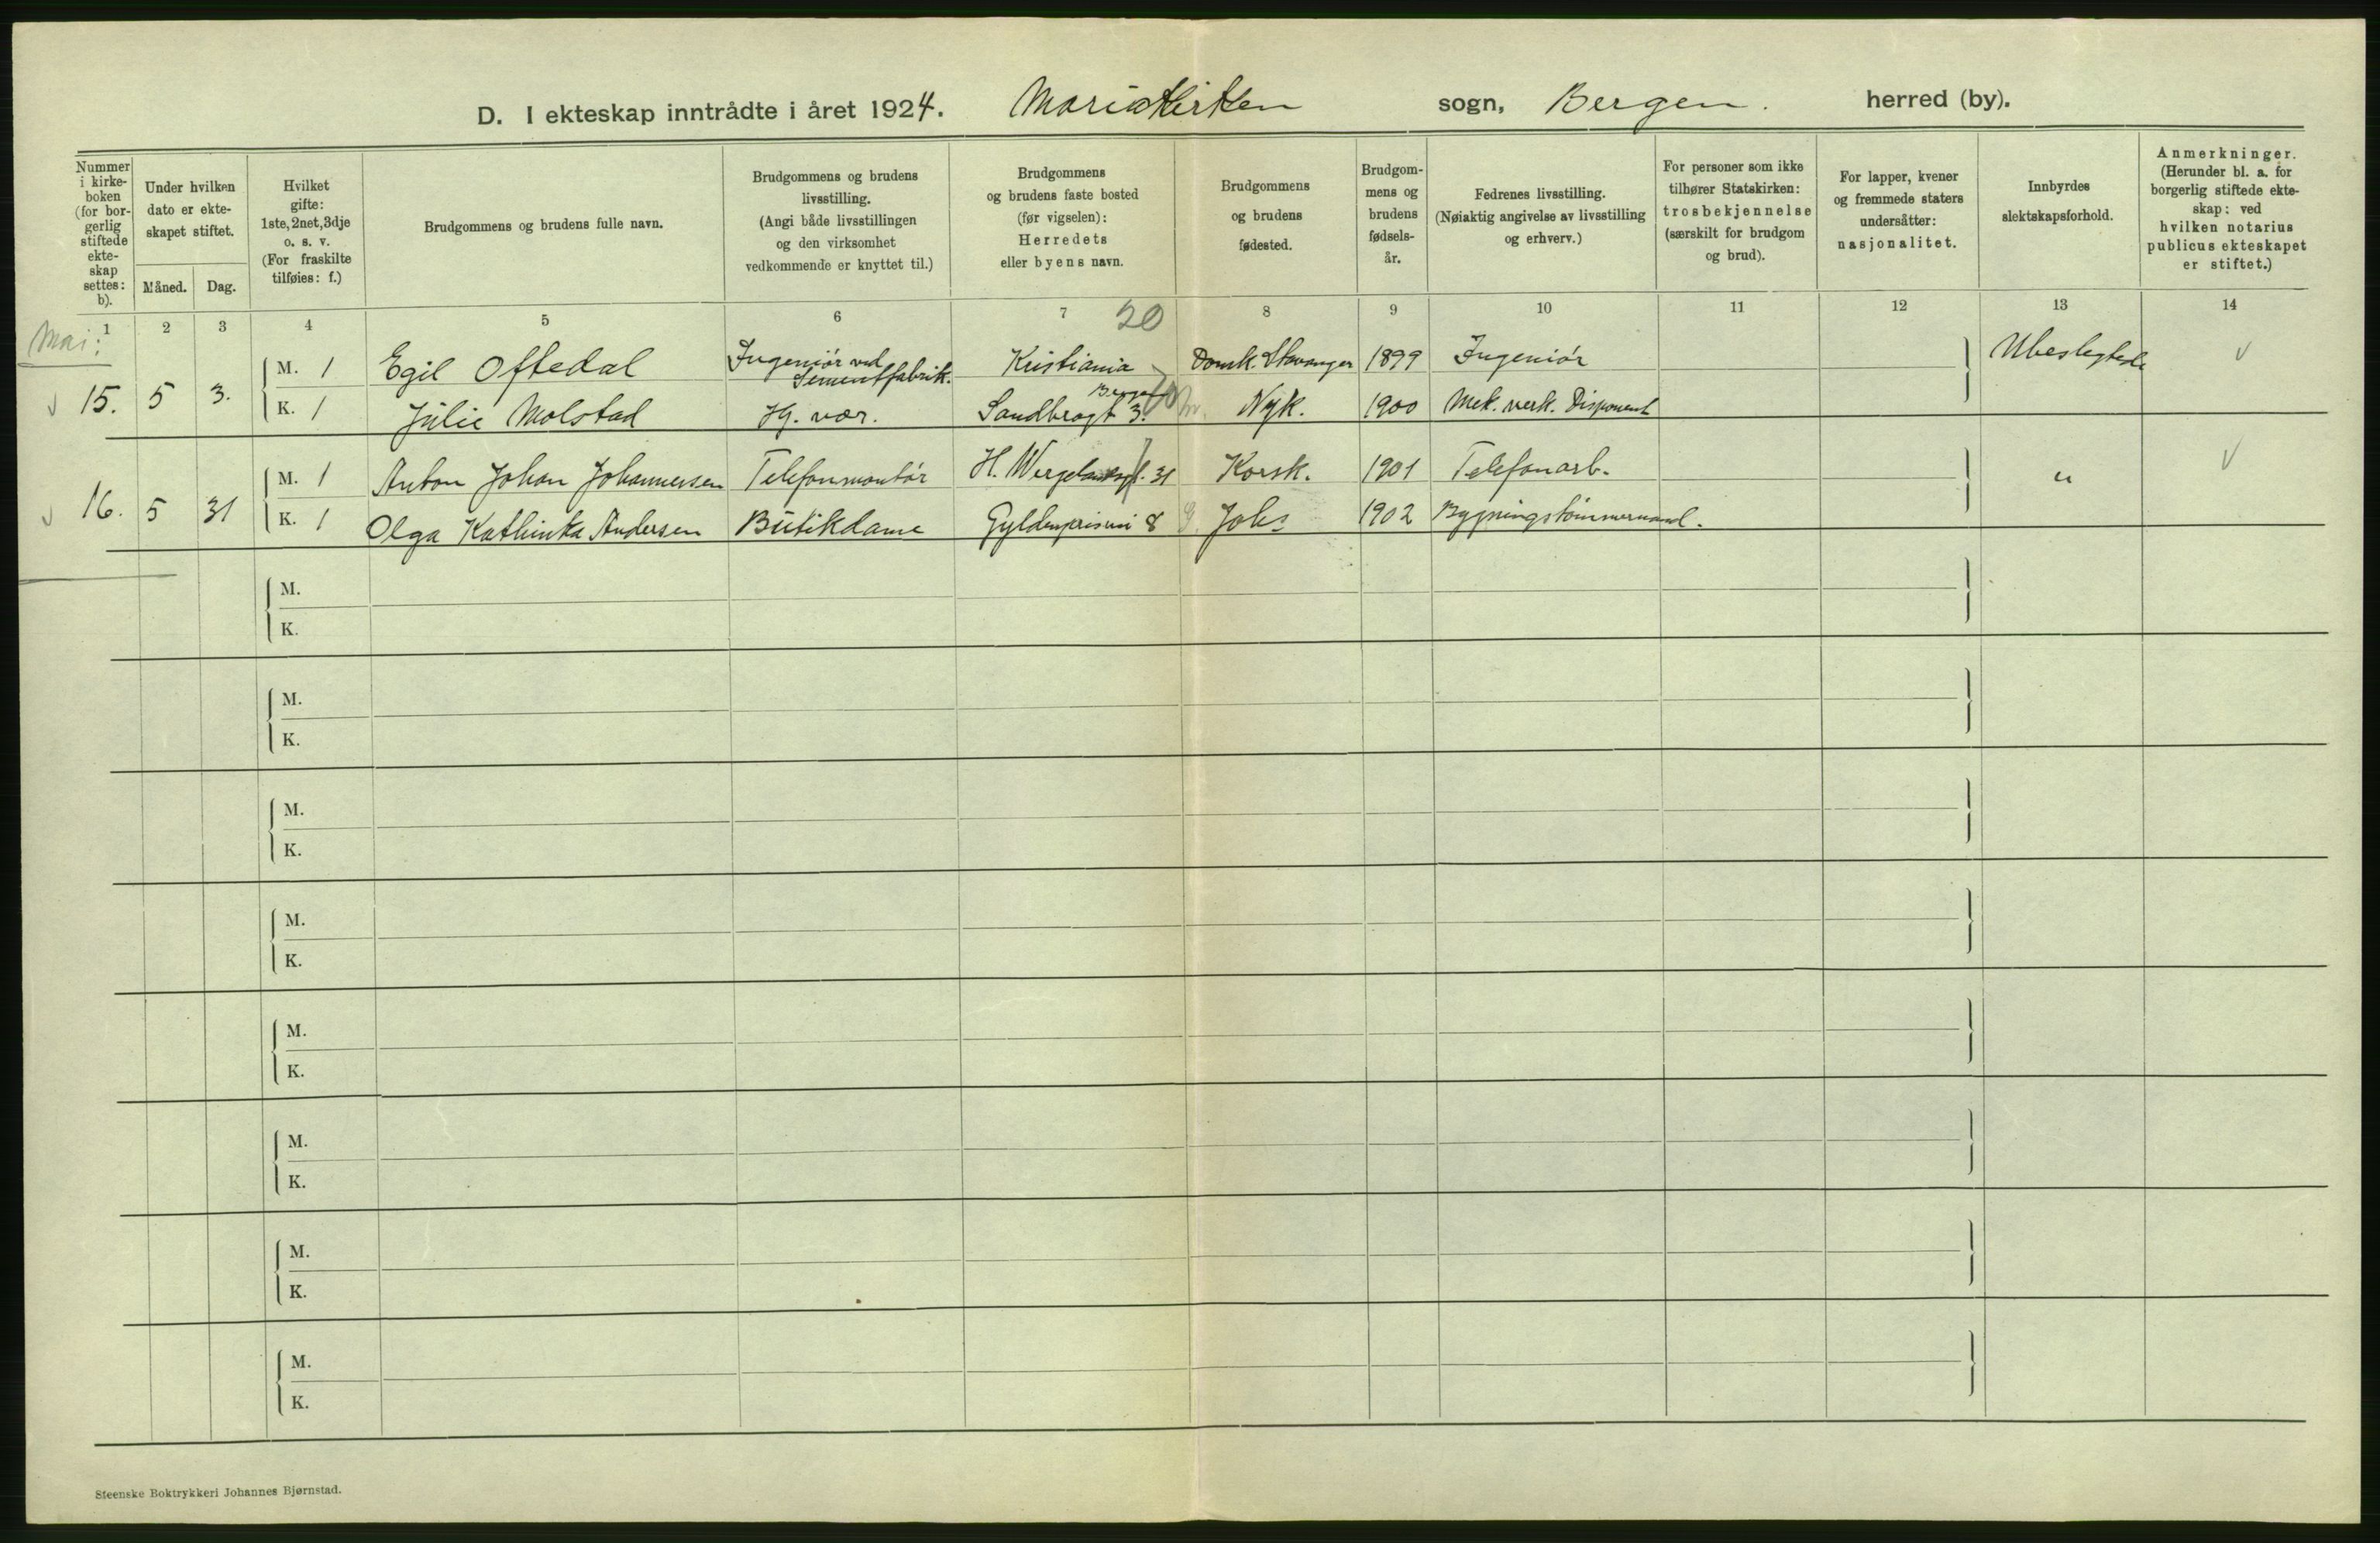 D. I ekteskap inntrådte i året 1924. Mariakirken sogn, Bergen. herred (by).
Nummer i kirke-boken (for bor-gerlig stiftede ekte-skap settes: b).
Under hvilken dato er ekte-skapet stiftet.
Måned. Dag.
Hvilket gifte: 1ste, 2net, 3dje o. s. v. (For fraskilte tilføies: f.)
Brudgommens og brudens fulle navn.
Brudgommens og brudens livsstilling. (Angi både livsstillingen og den virksomhet vedkommende er knyttet til.)
Brudgommens og brudens faste bosted (før vigselen): Herredets eller byens navn.
Brudgommens og brudens fødested.
Brudgom-mens og brudens fødsels-år.
Fedrenes livsstilling. (Nøiaktig angivelse av livsstilling og erhverv.)
For personer som ikke tilhører Statskirken: trosbekjennelse (særskilt for brudgom og brud).
For lapper, kvener og fremmede staters undersåtter: nasjonalitet.
Innbyrdes slektskapsforhold.
Anmerkninger. (Herunder bl. a. for borgerlig stiftede ekte-skap: ved hvilken notarius publicus ekteskapet er stiftet.)
1 2 3 4 5 6 7 8 9 10 11 12 13 14
20
Mai:
15. 5 3. M. 1 Egil Oftedal Ingeniør ved Sementfabrik. Kristiania Domk. Stavanger 1899 Ingeniør Ubeslegtede
K. 1 Julie Molstad Hj. vær. Sandbrogt 3. Bergen Nyk. 1900 Mek. verk. Disponent
16. 5 31 M. 1 Anton Johan Johannessen Telefonmontør H. Wergelandsgt. 31 Korsk. 1901 Telefonarb. "
K. 1 Olga Kathinka Andersen Butikdame Gyldenprisvei 8 Johs 1902 Bygningstømmermand.
M.
K.
M.
K.
M.
K.
M.
K.
M.
K.
M.
K.
M.
K.
M.
K.
Steenske Boktrykkeri Johannes Bjørnstad.